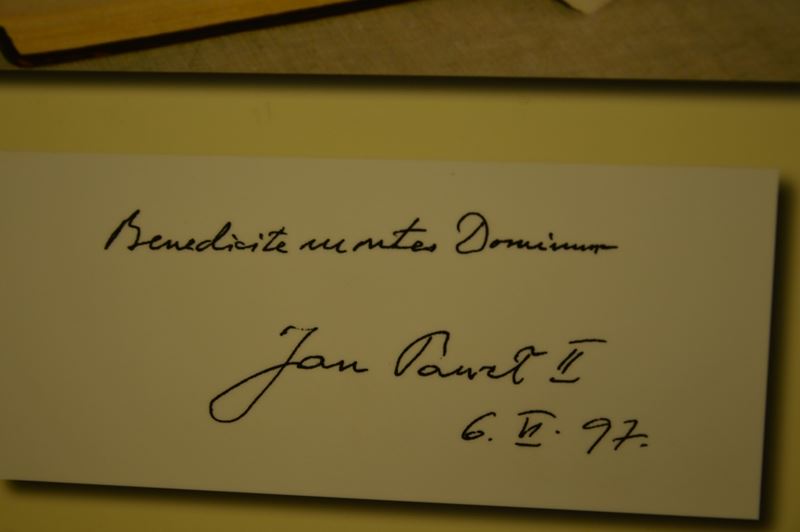 Benedicite montes Dominum
Jan Paweł II
6. VI. 97.